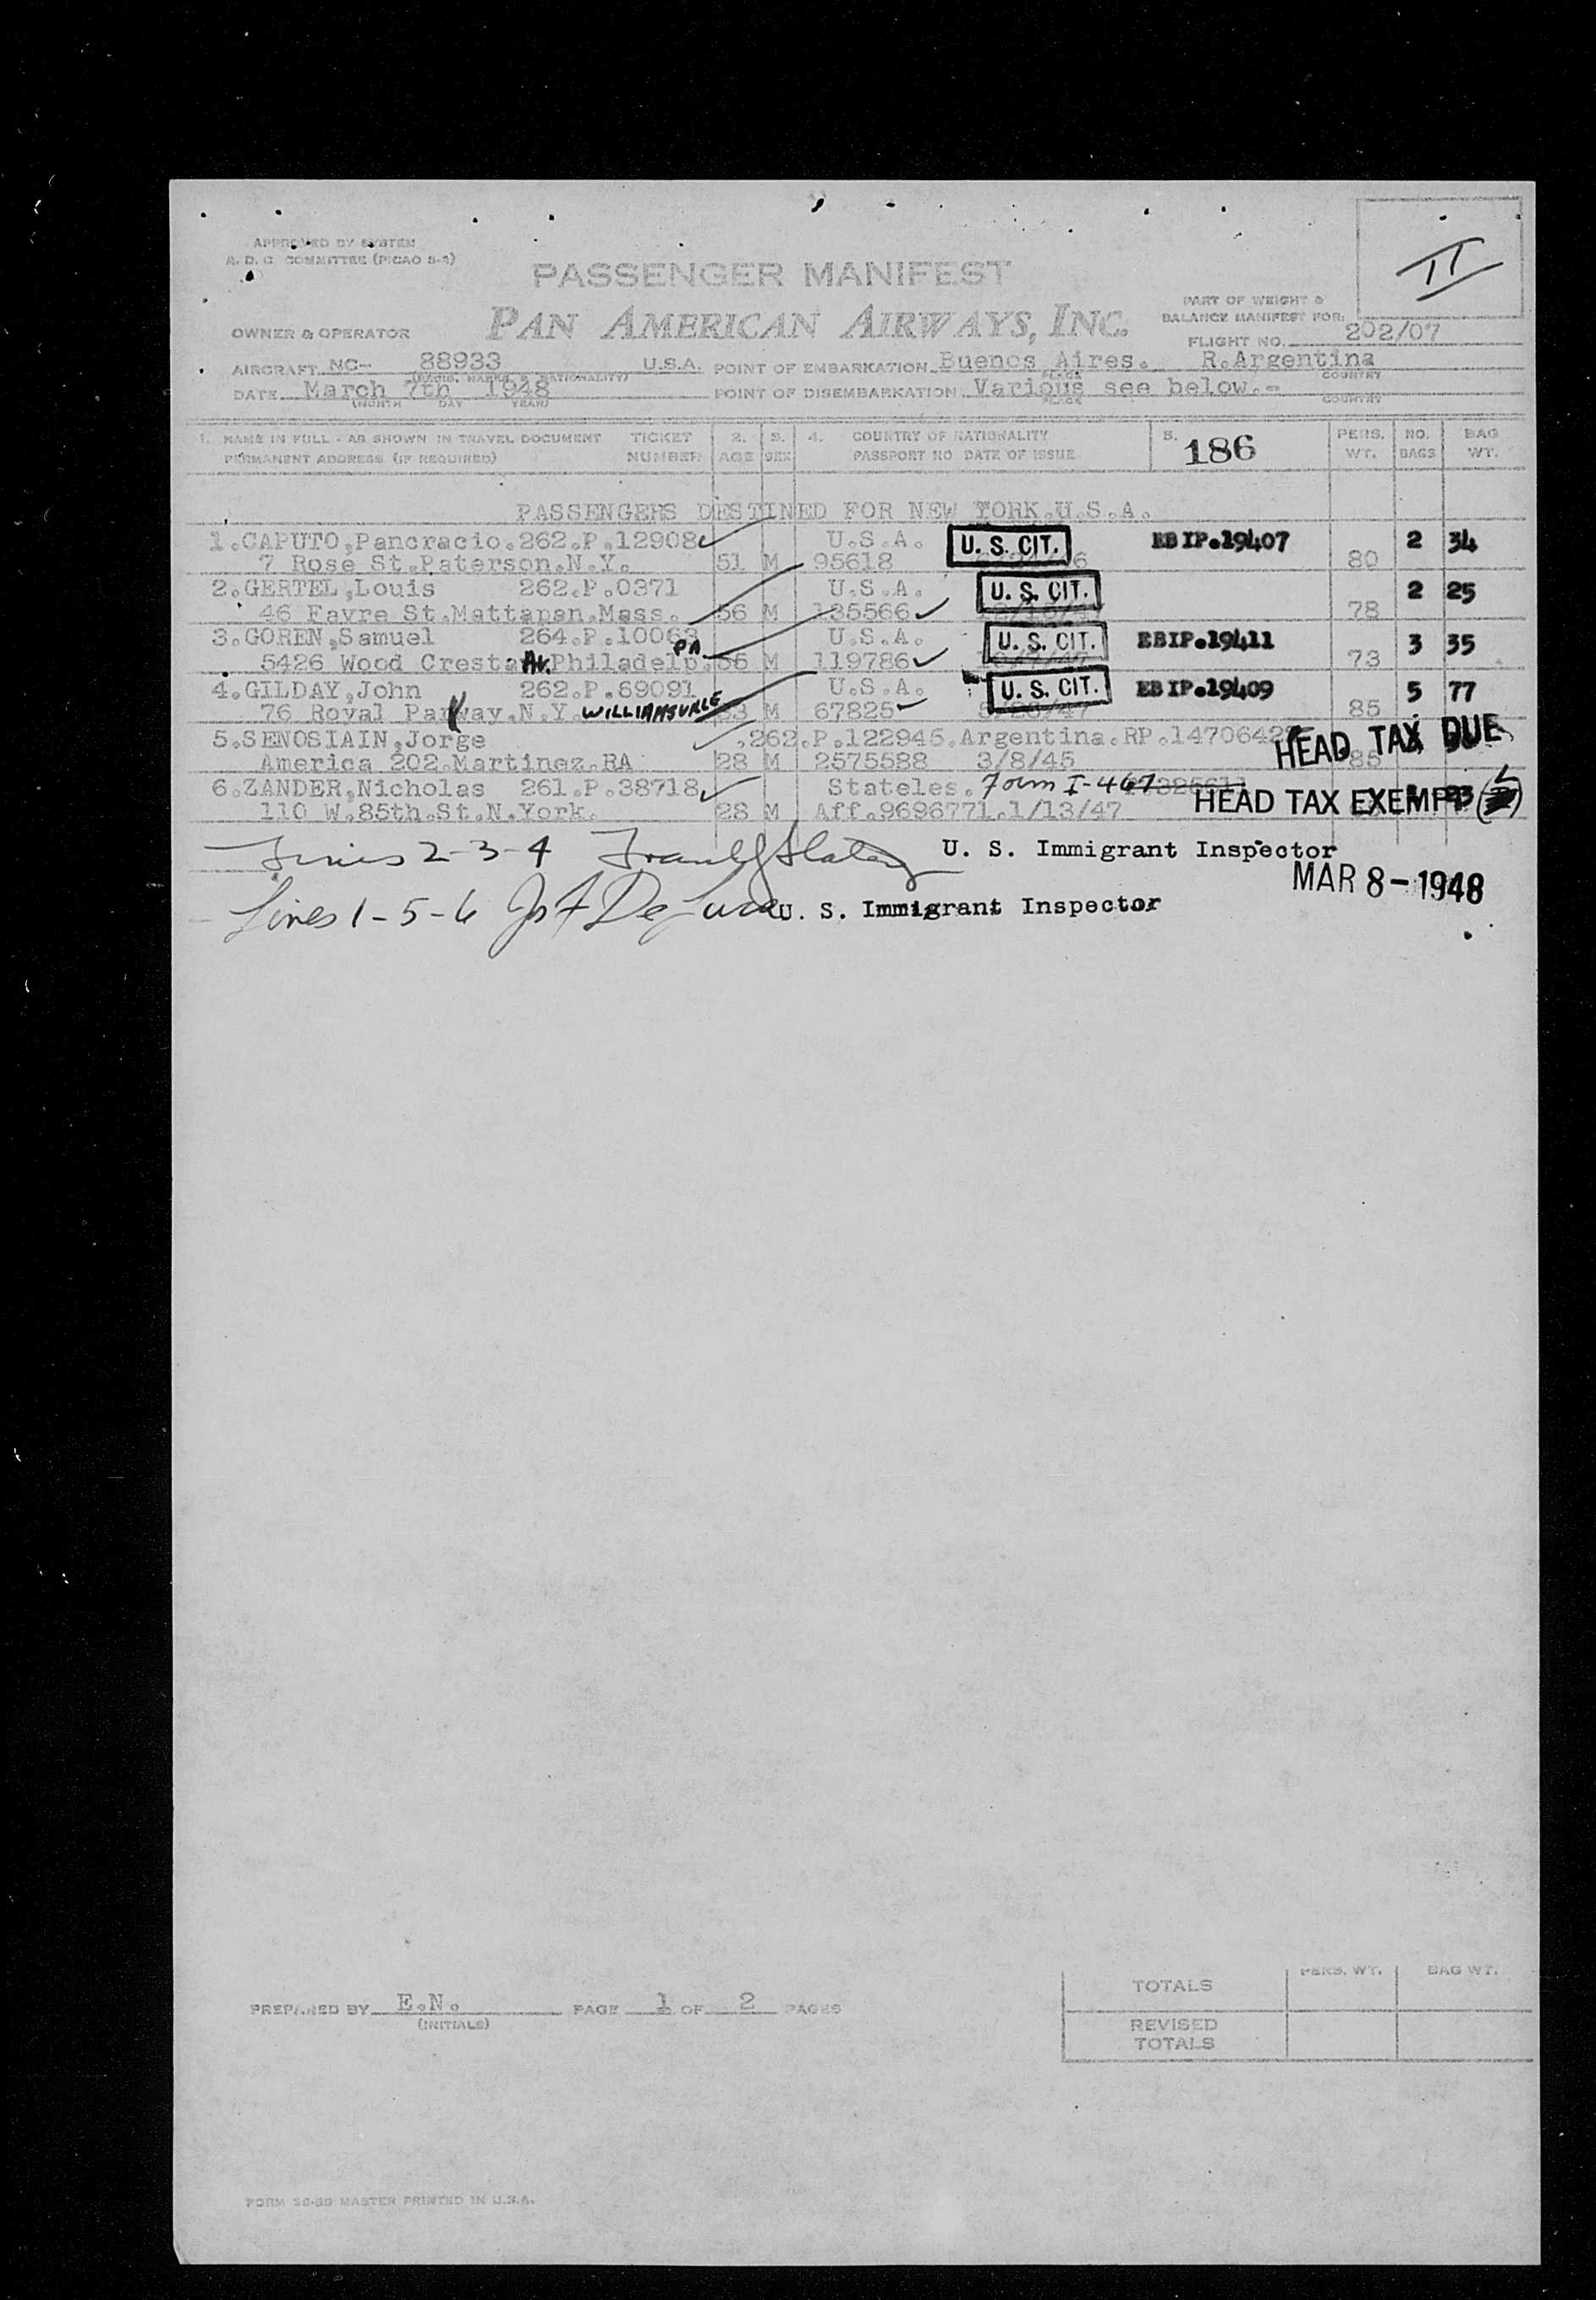 II
APPROVED BY SYSTEM
A. D. C. COMMITTEE (PICAO S-4)
PASSENGER MANIFEST
PART OF WEIGHT &
BALANCE MANIFEST FOR:
OWNER & OPERATOR PAN AMERICAN AIRWAYS, INC.
FLIGHT NO. 202/07
AIRCRAFT NC- 88933 U.S.A. POINT OF EMBARKATION Buenos Aires. R.Argentina
PLACE COUNTRY
DATE March 7th 1948 POINT OF DISEMBARKATION Various see below.-
(MONTH DAY YEAR) PLACE COUNTRY
1. NAME IN FULL - AS SHOWN IN TRAVEL DOCUMENT TICKET 2. 3. 4. COUNTRY OF NATIONALITY 5. 186 PERS. NO. BAG
PERMANENT ADDRESS (IF REQUIRED) NUMBER AGE SEX PASSPORT NO DATE OF ISSUE WT. BAGS WT.
PASSENGERS DESTINED FOR NEW YORK.U.S.A.
1.CAPUTO,Pancracio.262.P.12908 U.S.A. U. S. CIT. EBIP.19407 2 34
7 Rose St.Paterson.N.Y. 51 M 95618 80
2.GERTEL,Louis 262.P.0371 U.S.A. U. S. CIT. 2 25
46 Favre St.Mattapan.Mass. 56 M 135566 78
3.GOREN,Samuel 264.P.10063 U.S.A. U. S. CIT. EBIP.19411 3 35
5426 Wood Crest Av. Philadelp. PA 56 M 119786 73
4.GILDAY,John 262.P.69091 U.S.A. U. S. CIT. EBIP.19409 5 77
76 Royal Parkway.N.Y. WILLIAMSVILLE M 67825 85
5.SENOSIAIN,Jorge 262.P.122945.Argentina.RP. HEAD TAX DUE
America 202.Martinez.RA 28 M 2575588 3/8/45 85
6.ZANDER,Nicholas 261.P.38718 Stateles. Form I-467 HEAD TAX EXEMPT
110 W.85th.St.N.York. 28 M Aff.9696771.1/13/47
Lines 2-3-4 U. S. Immigrant Inspector
MAR 8-1948
Lines 1-5-6 U. S. Immigrant Inspector
PREPARED BY E.N. PAGE 1 OF 2 PAGES
(INITIALS)
PERS. WT. BAG WT.
TOTALS
REVISED
TOTALS
FORM 36-69 MASTER PRINTED IN U.S.A.